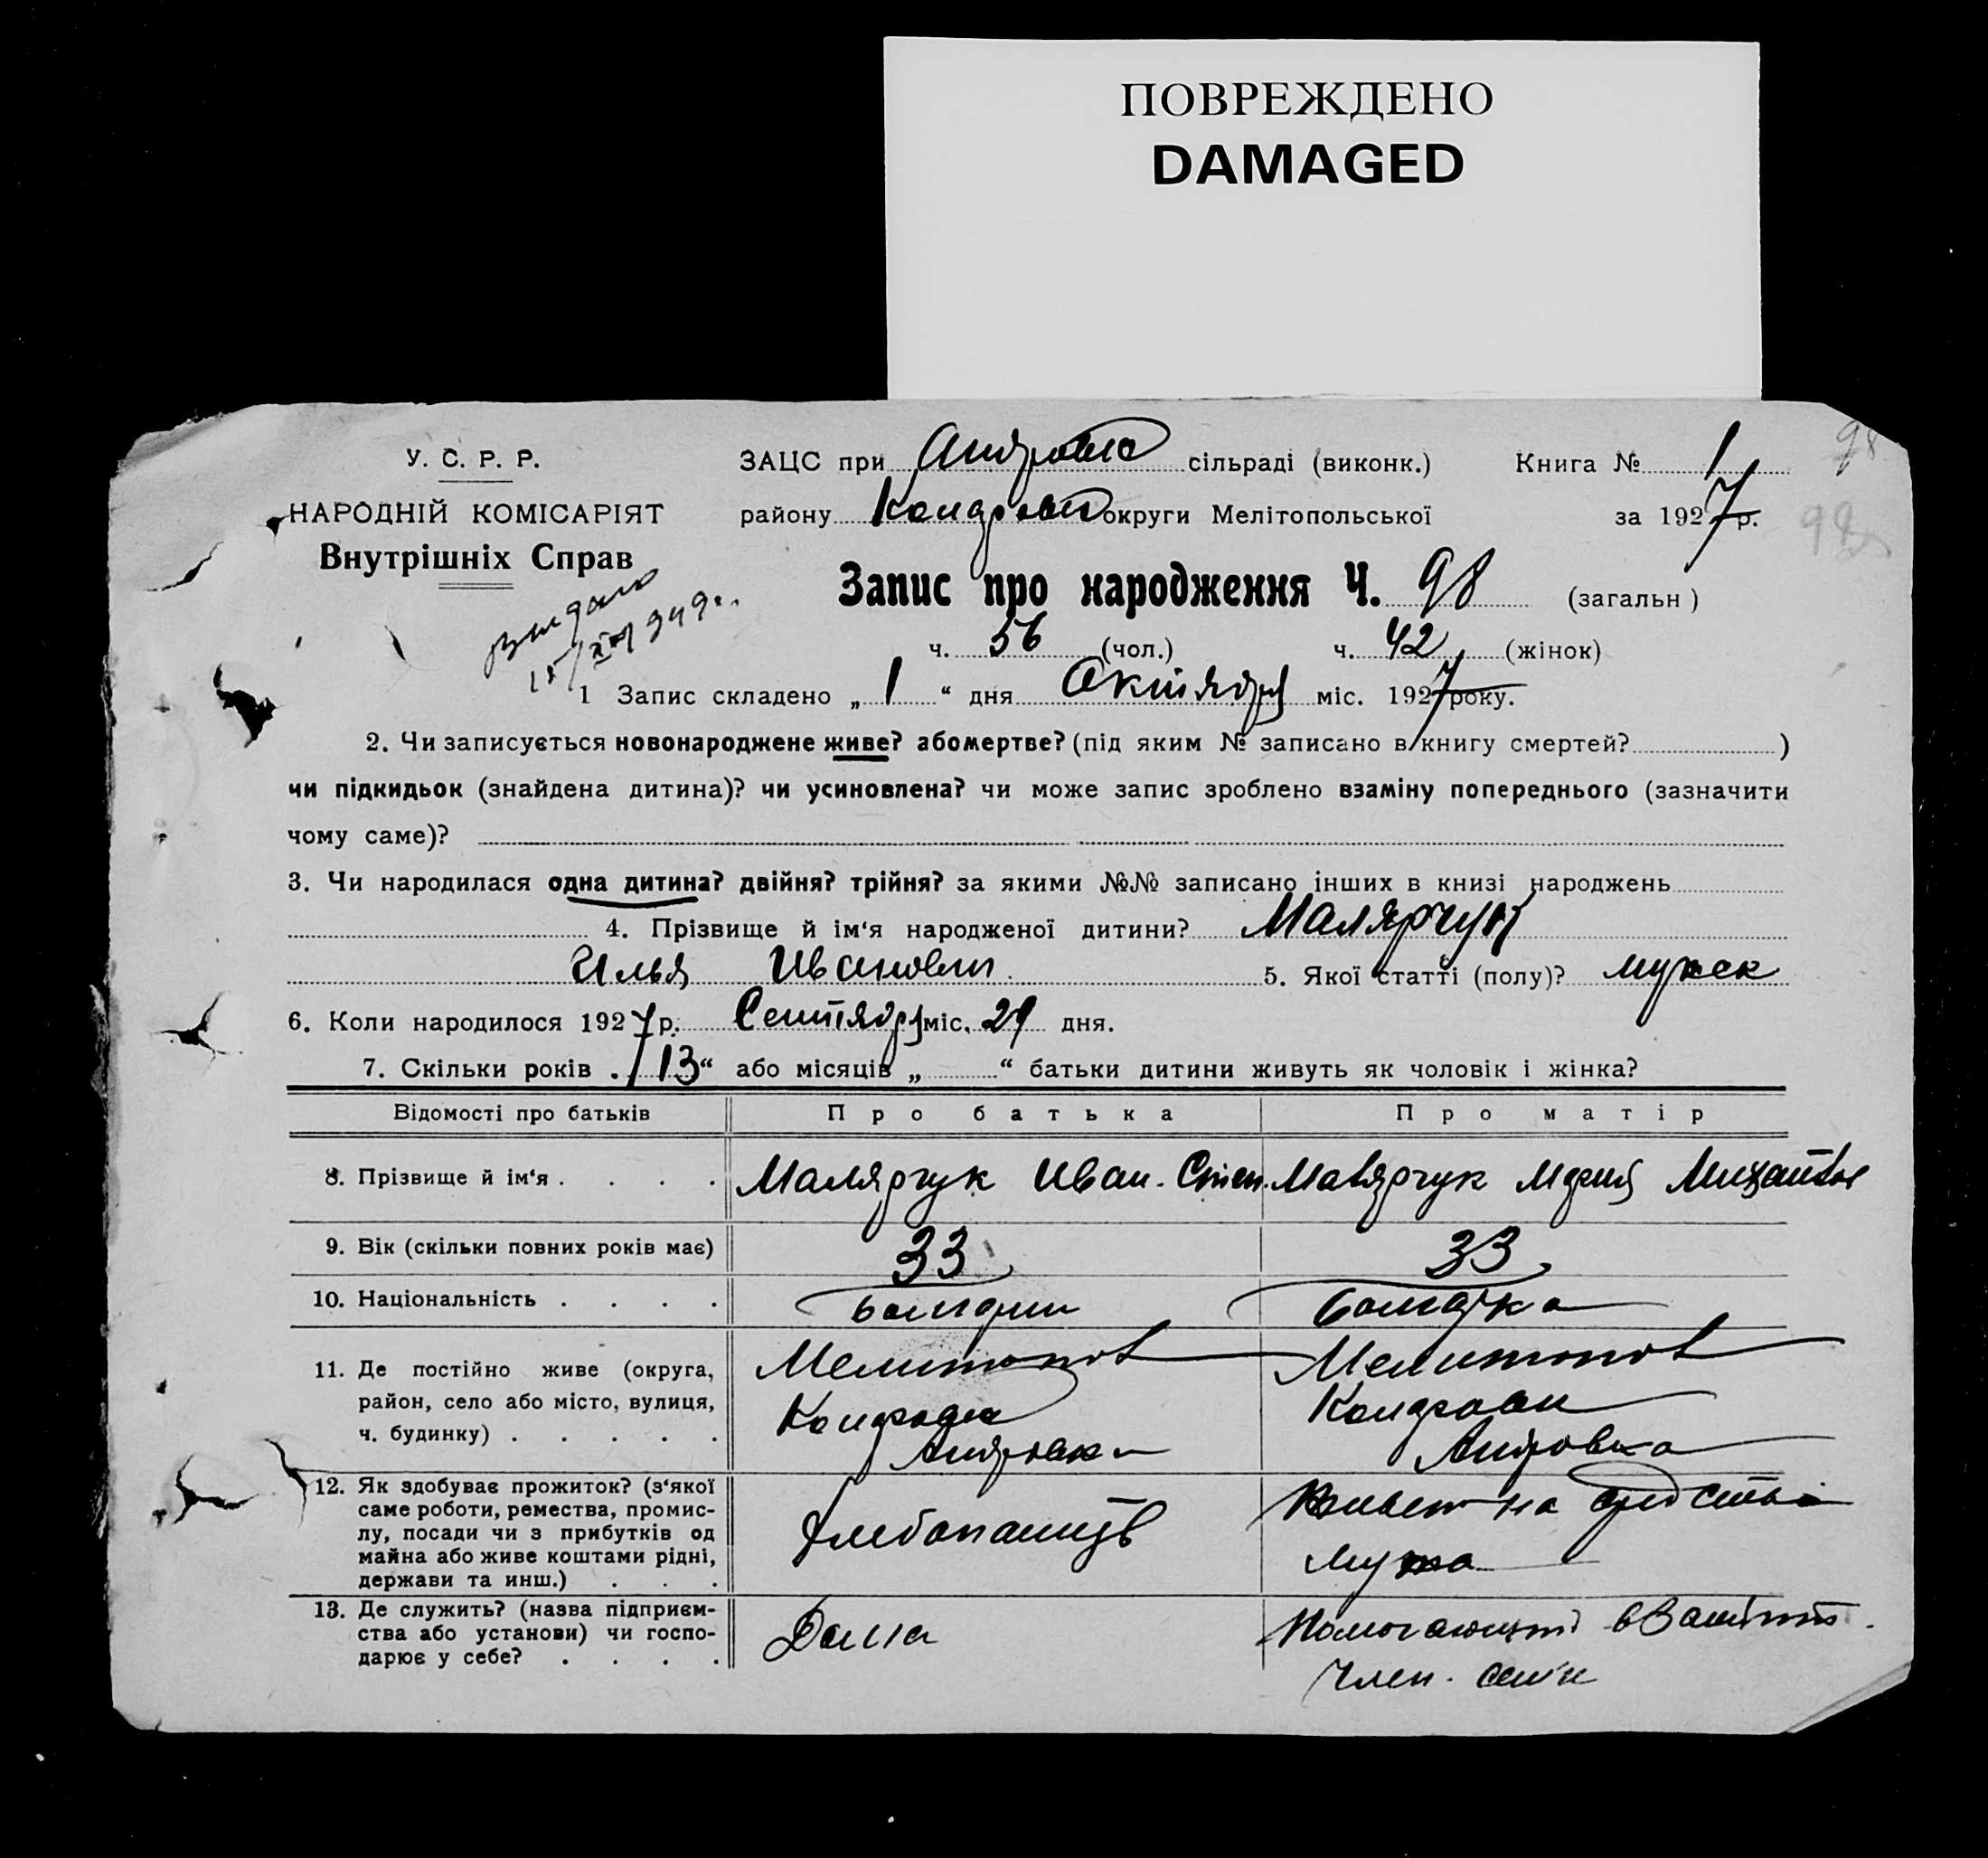 ПОВРЕЖДЕНО
DAMAGED
98
У. С. Р. Р.
НАРОДНІЙ КОМІСАРІЯТ
Внутрішніх Справ
ЗАЦС при Андровка сільраді (виконк.) Книга № 1
району Колдрован округи Мелітопольської за 1927 р.
Запис про народження Ч. 98 (загальн)
ч. 56 (чол.) ч. 42 (жінок)
1 Запис складено „ 1 “ дня Октября міс. 1927 року.
2. Чи записується новонароджене живе? або мертве? (під яким № записано в книгу смертей? )
чи підкидьок (знайдена дитина)? чи усиновлена? чи може запис зроблено взаміну попереднього (зазначити
чому саме)?
3. Чи народилася одна дитина? двійня? трійня? за якими №№ записано інших в книзі народжень
4. Прізвище й ім‘я народженої дитини? Малярчук
Илья Иванович 5. Якої статті (полу)? мужск
6. Коли народилося 1927 р. Сентября міс. 29 дня.
7. Скільки років „ 13 “ або місяців „ “ батьки дитини живуть як чоловік і жінка?
Відомості про батьків Про батька Про матір
8. Прізвище й ім‘я . . . . Малярчук Иван. Степ. Малярчук Мария
9. Вік (скільки повних років має) 33 33
10. Національність . . . . болгарин болгарка
11. Де постійно живе (округа, Мелитопол Мелитопол
район, село або місто, вулиця,
ч. будинку) . . . . . Андровка Андровка
12. Як здобуває прожиток? (з‘якої
саме роботи, ремества, промис-
лу, посади чи з прибутків од
майна або живе коштами рідні,
держави та инш.) . . .
Хлебопашец
Живет на средства
мужа
13. Де служить? (назва підприєм-
ства або установи) чи госпо-
дарює у себе? . . . .
Дома
Помогающий
член. семи